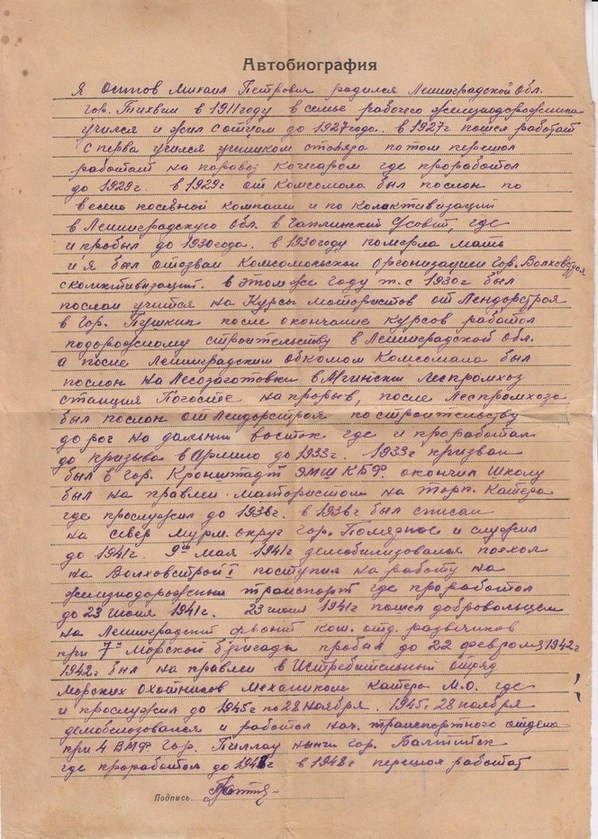 Автобиография
Я Михаил Петрович родился Ленинградской Обл.
гор. Тихвин в 1911 году в семье рабочего железнодорожника
учился и жил с отцом до 1927 года. в 1927 г пошел работать
с перва учился учеником столяра потом перешол
работать на паравоз кочегаром где проработол
до 1929 г. в 1929 г от Комсомола был послон по
весне посевной компании и по колактивизаций
в Ленинградскую Обл. в где
и пробыл до 1930 года. в 1930 году померла мать
и я был отозван Комсомольской Организацией гор. Волховстроя
с колективизаций. в этом же году т.е 1930 г был
послан учится на Курсы мотористов от Лендорстроя
в гор. Пушкин после окончание курсов работол
по дорожному строительству в Ленинградской Обл.
а после Ленинградским обкомом Комсомола был
послон на Лесозаготовки в Мгинский Леспромхоз
станция Погостье на прорыв, после Леспромхоза
был послон от Лендорстроя по строительству
дорог на дальний восток где и проработал
до призыва в Армию до 1933 г. 1933 г призван
был в гор. Кронштадт ЭМШ КБФ. окончил Школу
был на правлен мотористом на торп. Катера
где прослужил до 1936 г. в 1936 г был списан
на север Мурм. округ гор. Полярное и служил
до 1941 г. 9го Мая 1941 г демобилизовался поехол
на Волховстрой I поступил на работу на
железнодорожный транспорт где проработол
до 23 июня 1941 г. 23 июня 1941 г пошел добровольцем
на Ленинградский фронт отд. разведчиков
при 7й Морской бригады пробыл до 22 февроля 1942 г
1942 г был на правлен в Истребительный отряд
Морских Охотников Механиком Катера М.О. где
и прослужил до 1945 г по 28 Ноября. 1945 г. 28 ноября
демобилизовался и работол нач. транспортного отдела
при 4 ВМФ гор. Пиллау нынче гор. Балтийск
где проработол до 1948 г в 1948 г перешол работать
Подпись